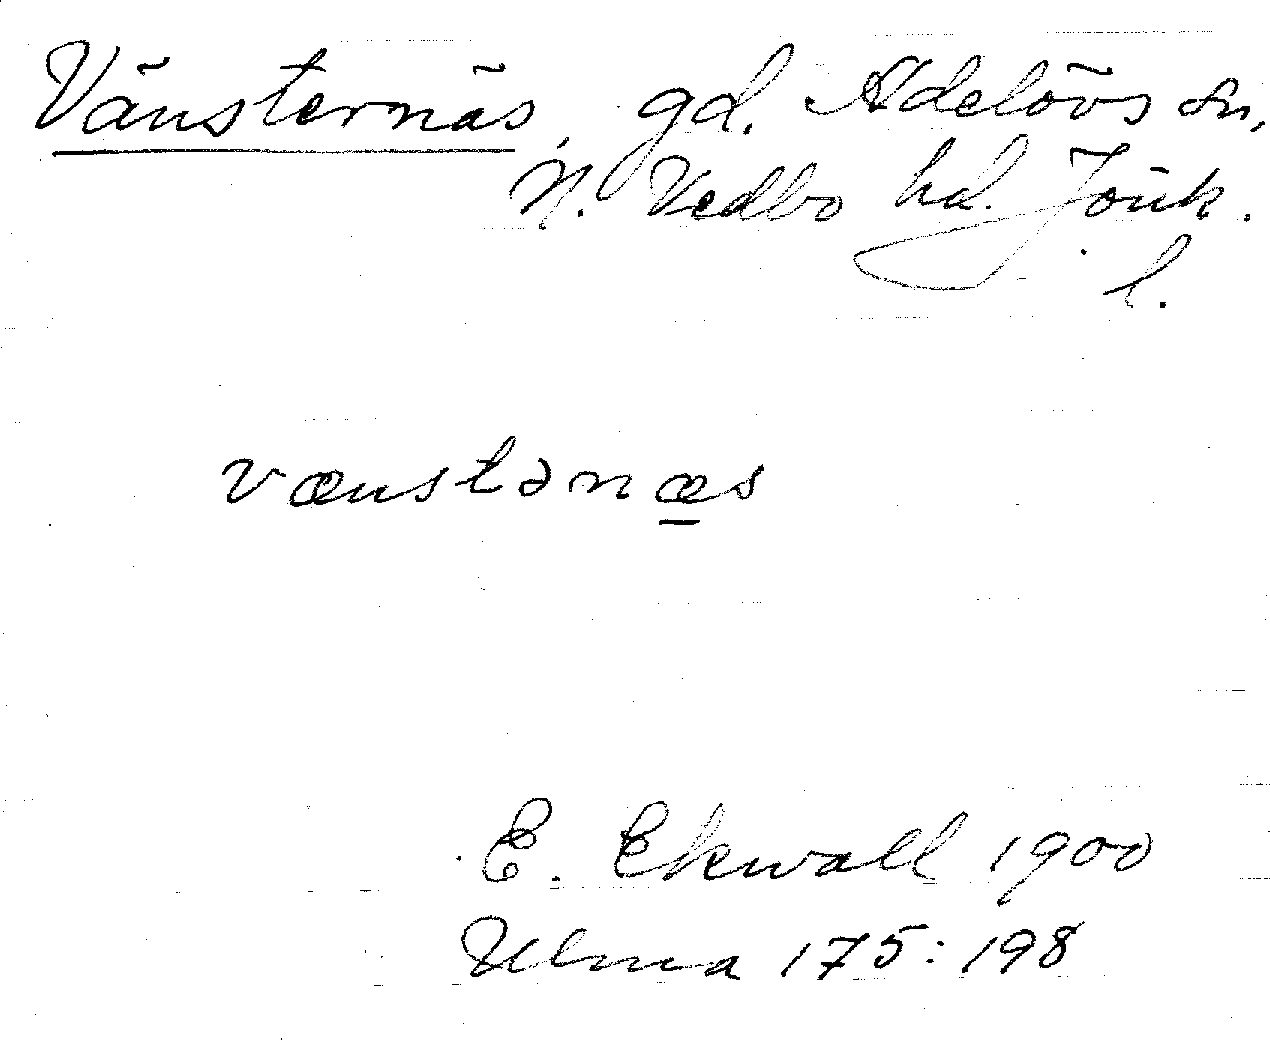 Vänsternäs, gd. Adelövs sn,
N. Vedbo hd. Jönk.
l.
vænstənæs
E. Ekwall 1900
Ulma 175:198